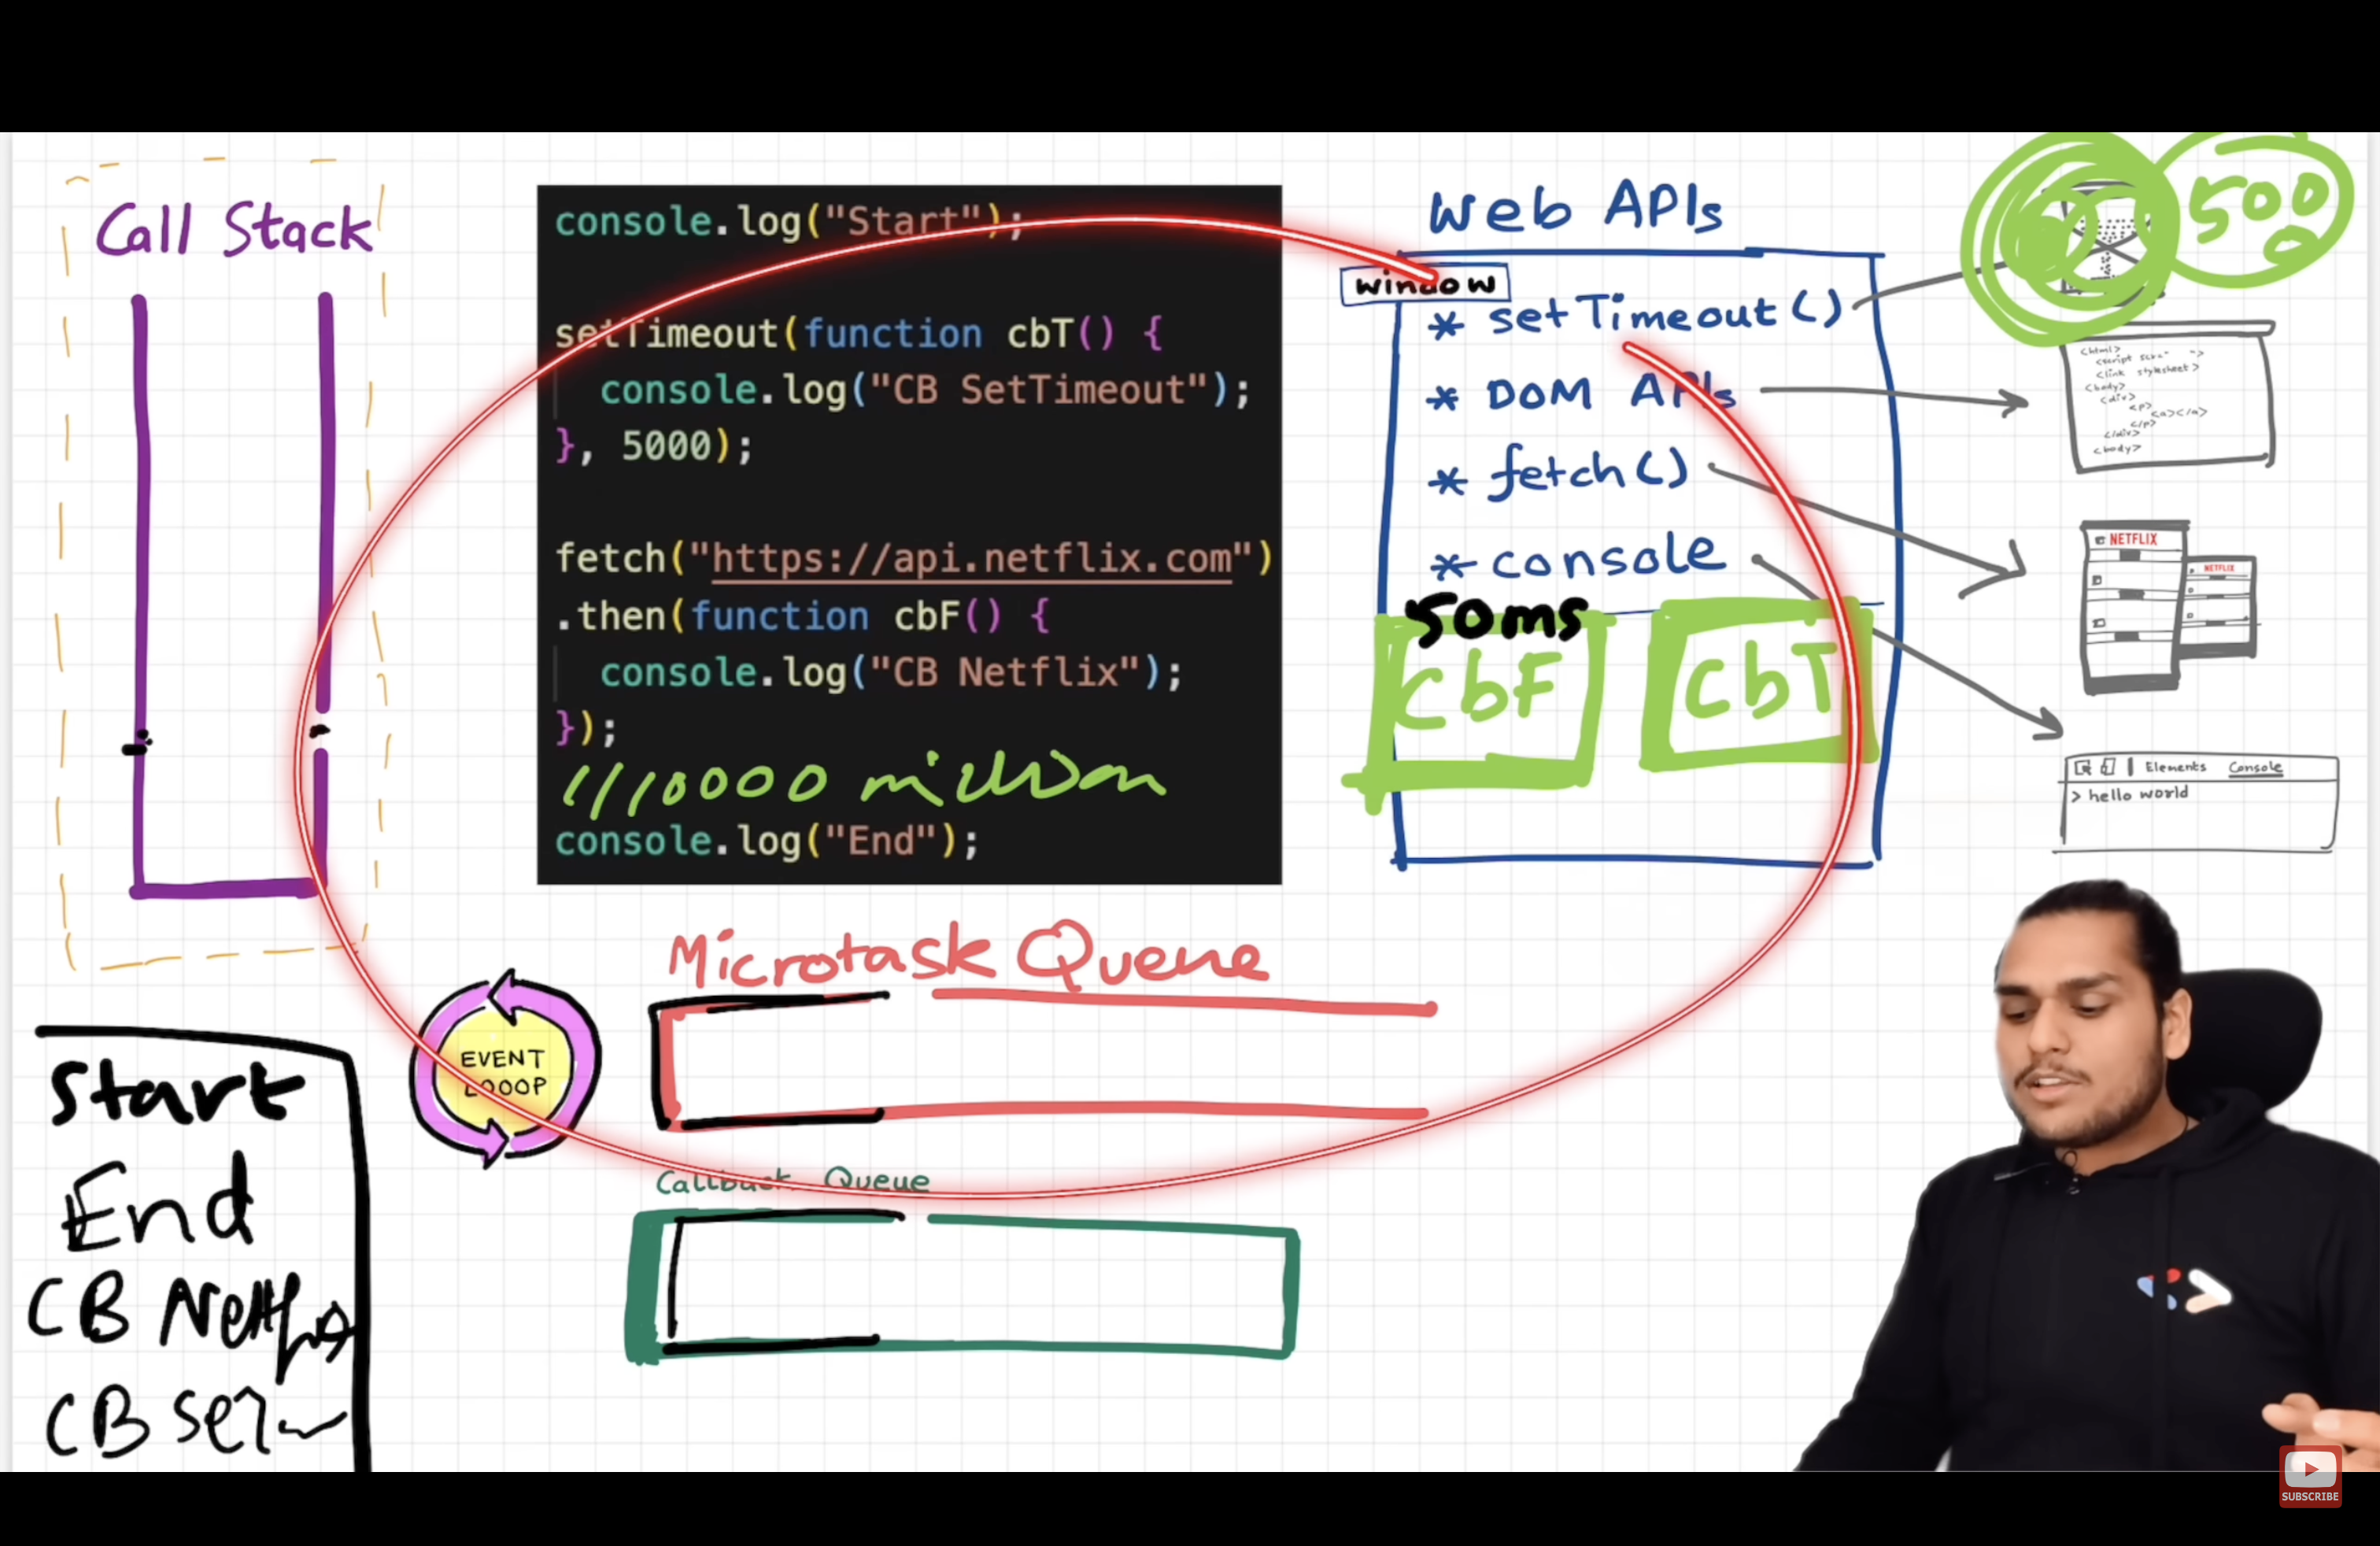 Call Stack
console.log("Start");
setTimeout(function cbT() {
console.log("CB SetTimeout");
}, 5000);
fetch("https://api.netflix.com")
.then(function cbF() {
console.log("CB Netflix");
});
///10000 million
console.log("End");
Web APIs
window
* setTimeout()
* DOM APIs
* fetch()
* console
50ms
CbF
CbT
500
0
<html>
<link stylesheet>
<body>
<div>
<p>
<a></a>
</p>
</div>
<body>
NETFLIX
NETFLIX
Elements Console
> hello world
Microtask Queue
EVENT
LOOOP
Callback Queue
Start
End
CB
CB
SUBSCRIBE